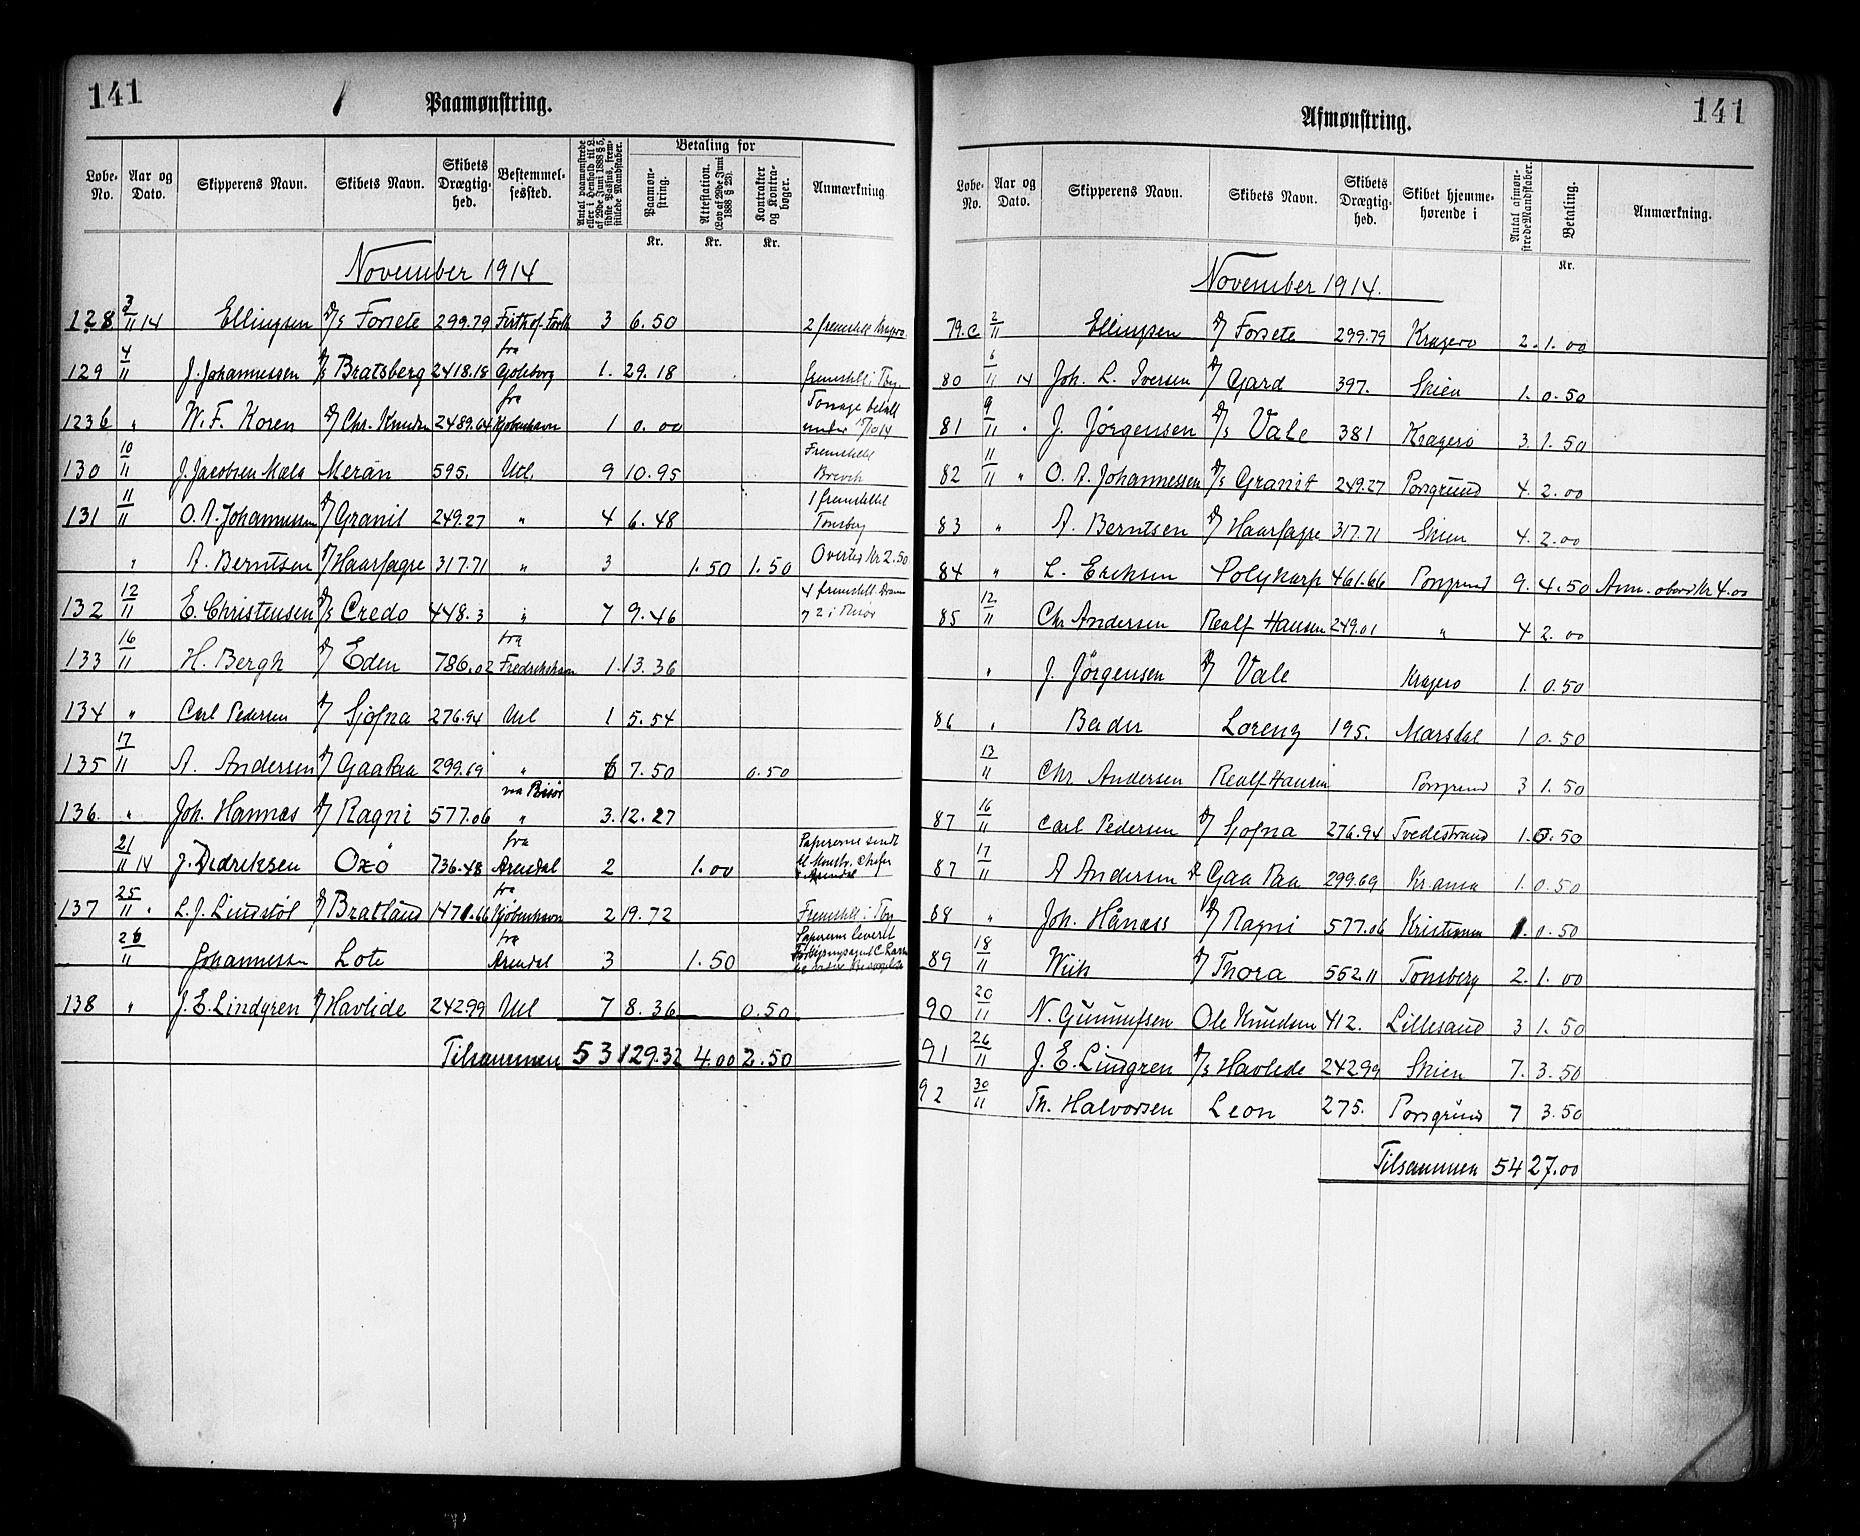 141
Paamønstring.
Løbe-No. Aar og Dato. Skipperens Navn. Skibets Navn. Skibets Drægtighed. Bestemmelsessted. Antal paamønstrede eller i Henhold til L. af 29de Juni 1888 § 5, sidste Passus, fremstillede Mandskaber. Betaling for Paamønstring. Attestation. (Lov af 29de Juni 1888 § 28). Kontrakter og Kontrabøger. Anmærkning
Kr. Kr. Kr.
November 1914
128 3/11 14 Ellingsen D/S Forsete 299.79 Firth of Forth 3 6.50 2 fremstill Kragerø
129 4/11 J. Johannessen D/S Bratsberg 2418.18 fra Gøteborg 1. 29.18 fremstill i Tbg
123 b " W. F. Koren D/ Chr. Knudsen 2489.64 fra Kjøbenhavn 1 0.00 Tonnage betalt under 15/10 14
130 10/11 J. Jacobsen Mæla Meran 595. Utl. 9 10.95 Fremstillet Brevik
131 11/11 O. A. Johannessen D/ Granit 249.27 " 4 6.48 1 fremstillet Tønsberg
" A. Berntsen D/ Haarfagre 317.71 " 3 1.50 1.50 Overtid Kr 2.50
132 12/11 E. Christensen D/S Credo 448.3 " 7 9.46 4 fremstill. Dram 7 2 i Risør
133 16/11 H. Bergh D/ Eden 786.02 fra Fredrikshavn 1. 13.36
134 " Carl Pedersen D/ Sjofna 276.94 Utl 1 5.54
135 17/11 A. Andersen D/ Gaa Paa 299.69 " 6 7.50 0.50
136. " Joh. Hannæs D/ Ragni 577.06 via Risør " 3. 12.27
21/11 14 J. Didriksen Oxö 736.48 fra Arendal 2 1.00 Papirerne sendt til Mønstr. Chefen i Arendal
137 25/11 " L. J. Lindstøl D/ Bratland 1471.66 fra Kjöbenhavn 2 19.72 Fremstill i Tbg
26/11 Johannessen Lote fra Arendal 3 1.50 Papirerne levert
138 " J. E. Lindgren D/ Havlide 242.99 Utl 7 8.36 0.50
Tilsammen 53 129.32 4.00 2.50
141
Afmønstring.
Løbe-No. Aar og Dato. Skipperens Navn. Skibets Navn. Skibets Drægtighed. Skibet hjemmehørende i Antal afmønstrede Mandskaber. Betaling. Anmærkning.
Kr.
November 1914.
79.c 2/11 Ellingsen D/ Forsete 299.79 Kragerø 2. 1.00
80 6/11 14 Joh. L. Iversen D/ Gard 397. Skien 1. 0.50
81 9/11 " J. Jörgensen D/S Vale 381 Kragerø 3. 1.50
82 11/11 " O. A. Johannessen D/S Granit 249.27 Porsgrund 4. 2.00
83 " A. Berntsen D/ Haarfagre 317.71 Skien 4. 2.00
84 " L. Eriksen Polykarp 461.66 Porsgrund 9. 4.50 Ann. obevd Kr 4.00
85 12/11 Chr Andersen Realf Hansen 249.01 " 4 2.00
" J. Jörgensen D/ Vale Kragerø 1. 0.50
86 " Bader Lorenz 195. Marstal 1 0.50
13/11 Chr. Andersen Realf Hansen Porsgrund 3 1.50
87 16/11 Carl Pedersen D/ Sjofna 276.94 Tvedestrand 1. 0.50
87 17/11 A Andersen D. Gaa Paa 299.69 Kr.ania 1. 0.50
88 " Joh. Hånæss D/ Ragni 577.06 1. 0.50
89 18/11 Wiik D/ Thora 552 11 Tønsberg 2. 1.00
90 20/11 N. Gunnufsen Ole Knudsen 412. Lillesand 3 1.50
91 26/11 J. E. Lindgren D/S Havlide 242.99 Skien 7. 3.50
92 30/11 Th. Halvorsen Leon 275. Porsgrund 7 3.50
Tilsammen 54 27.00